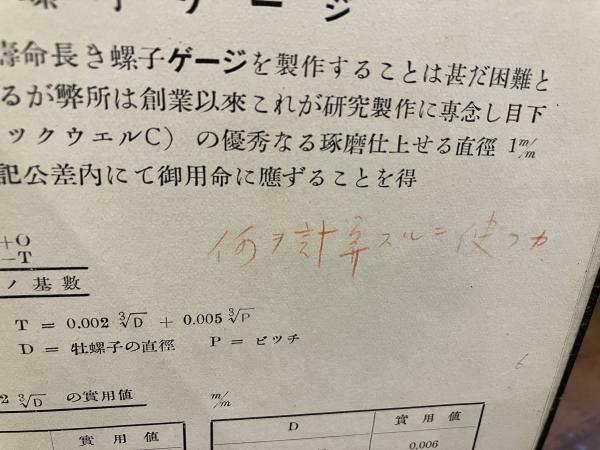 螺子ゲージ
壽命長き螺子ゲージを製作することは甚だ困難と
るが弊所は創業以來これが研究製作に專念し目下
ックウエルC）の優秀なる琢磨仕上せる直徑 1m/m
記公差内にて御用命に應ずることを得
+O
−T
何ヲ計算スルニ使フカ
ノ基數
T = 0.002 ∛D + 0.005 ∛P
D = 牡螺子の直徑 P = ピツチ
2 ∛D の實用値 m/m
實用値 D 實用値
0.006